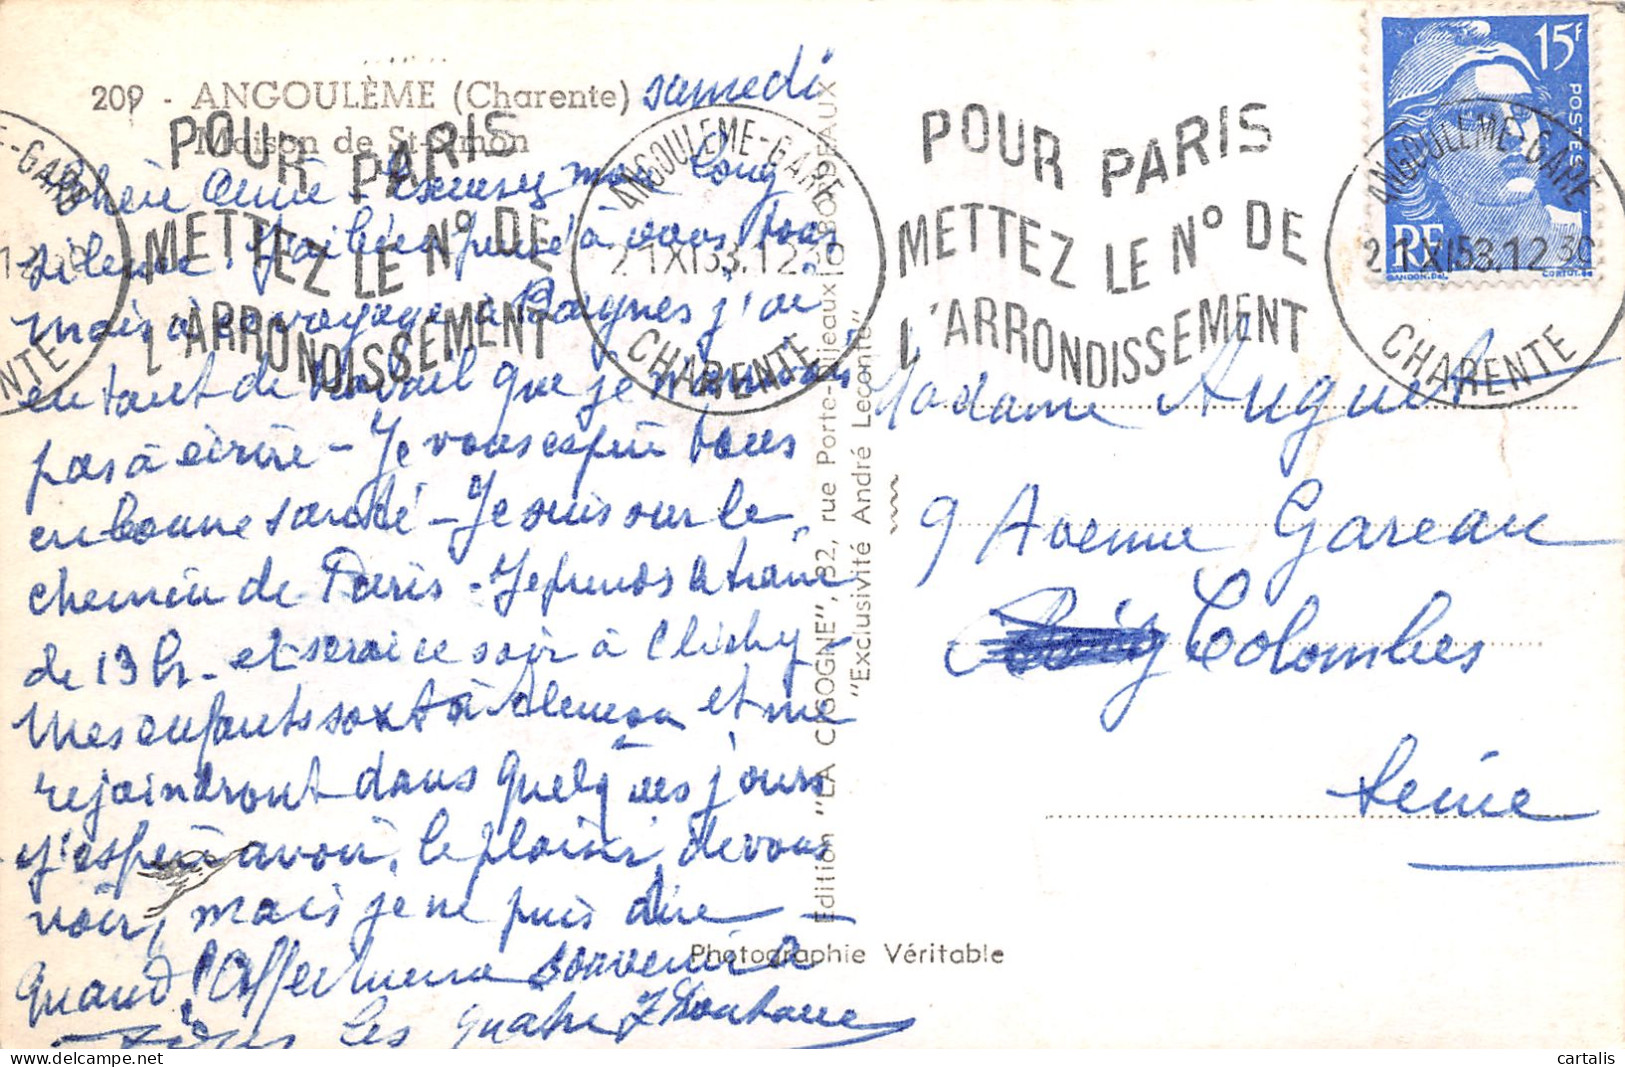 209 - ANGOULÊME (Charente)
Maison de St-Simon
samedi
POUR PARIS
METTEZ LE N° DE
L'ARRONDISSEMENT
ANGOULEME-GARE
21 XI 53.12 30
CHARENTE
POUR PARIS
METTEZ LE N° DE
L'ARRONDISSEMENT
ANGOULEME-GARE
21 XI 53.12 30
CHARENTE
15F
POSTES
RF
GANDON.Del.
CORTOT.Sc
Chère Amie - Excusez mon long
silence. J'ai bien pensé à vous tous
mais à ce voyage à Baignes j'ai
eu tant de travail que je n'arrivais
pas à écrire - Je vous espère tous
en bonne santé - Je suis sur le
chemin de Paris - Je prends le train
de 13 h. et serai ce soir à Clichy -
Mes enfants sont à et me
rejoindront dans quelques jours
j'espère avoir le plaisir de vous
voir, mais je ne puis dire
quand. Affectueux souvenir à
tous les quatre
Madame Auguet
9 Avenue Gareau
Colombes
Seine
Edition "LA CIGOGNE", 32, rue Porte-Dijeaux BORDEAUX
"Exclusivité André Leconte"
Photographie Véritable
cartalis